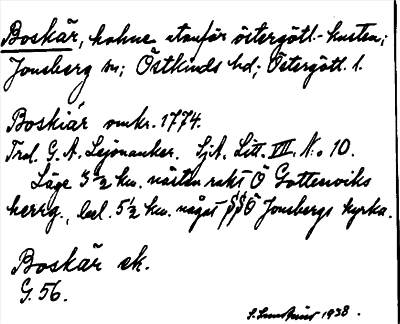 Boskär, holme utanför östergötl.-kusten;
Jonsberg sn; Östkinds hd; Östergötl. l.
Boskiär omkr. 1774.
Trol. G. A. Lejonanker. SjA. Litt. III No 10.
Läge 3 1/2 km. nästan rakt Ö Gottenviks
herrg., bel. 5 1/2 km. något SSÖ Jonsbergs kyrka.
Boskär ek.
G. 56.
1938.